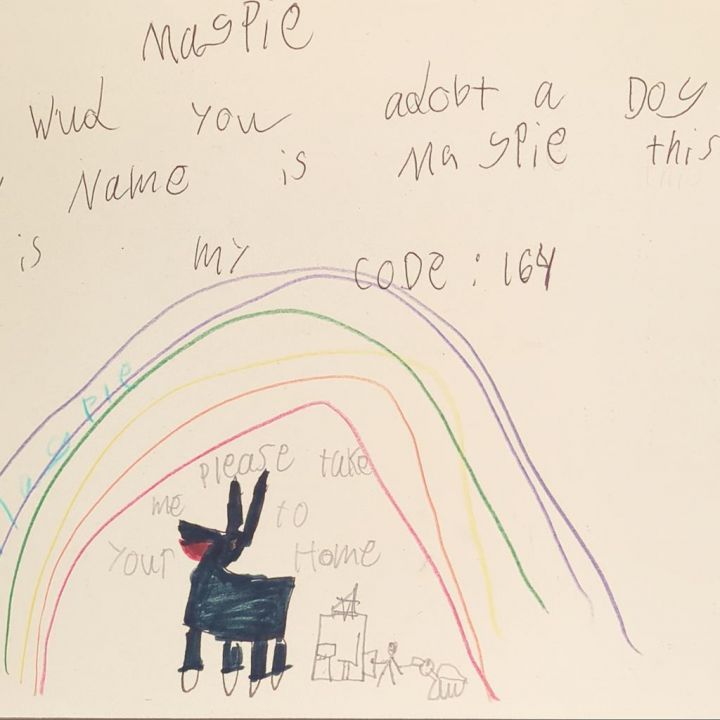 Magpie
Wud you adobt a Dog
Name is Magpie this
is my CODE: 164
please take
me to
Your Home